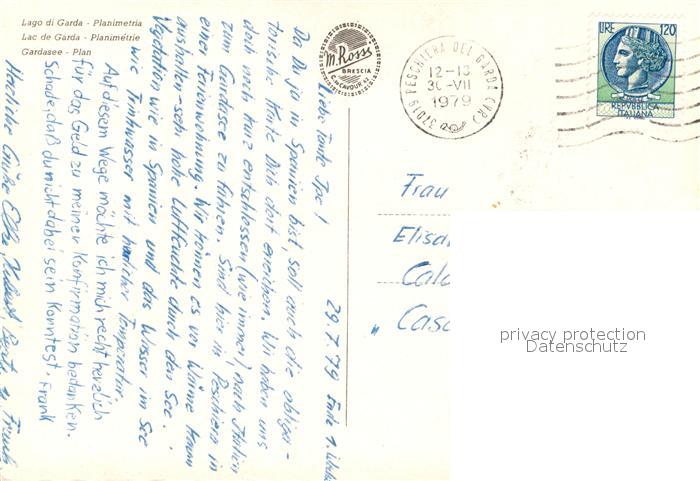 Lago di Garda - Planimetria
Lac de Garda - Planimétrie
Gardasee - Plan
M. Ross
BRESCIA
C. CAVOUR 42
37019 PESCHIERA DEL GARDA (VR)
12-13
30-VII
1979
LIRE 120
REPVBBLICA
ITALIANA
29.7.79 Ende 1. Woche
Liebe Tante Ipe!
Da Du in Spanien bist soll auch die obliga-
torische Karte Dich dort erreichen. Wir haben uns
doch noch kurz entschlossen (wie immer) nach Italien
zum Gardasee zu fahren. Sind hier in Peschiera in
einer Ferienwohnung. Wir können es vor Wärme kaum
aushalten - sehr hohe Luftfeuchte durch den See.
Vegetation wie in Spanien und das Wasser im See
wie Trinkwasser mit herrlicher Temperatur.
Auf diesem Wege möchte ich mich recht herzlich
für das Geld zu meiner Konfirmation bedanken.
Schade, daß du nicht dabei sein konntest. Frank
Herzliche Grüße
Frau
Elisa
Cala
Casa
privacy protection
Datenschutz